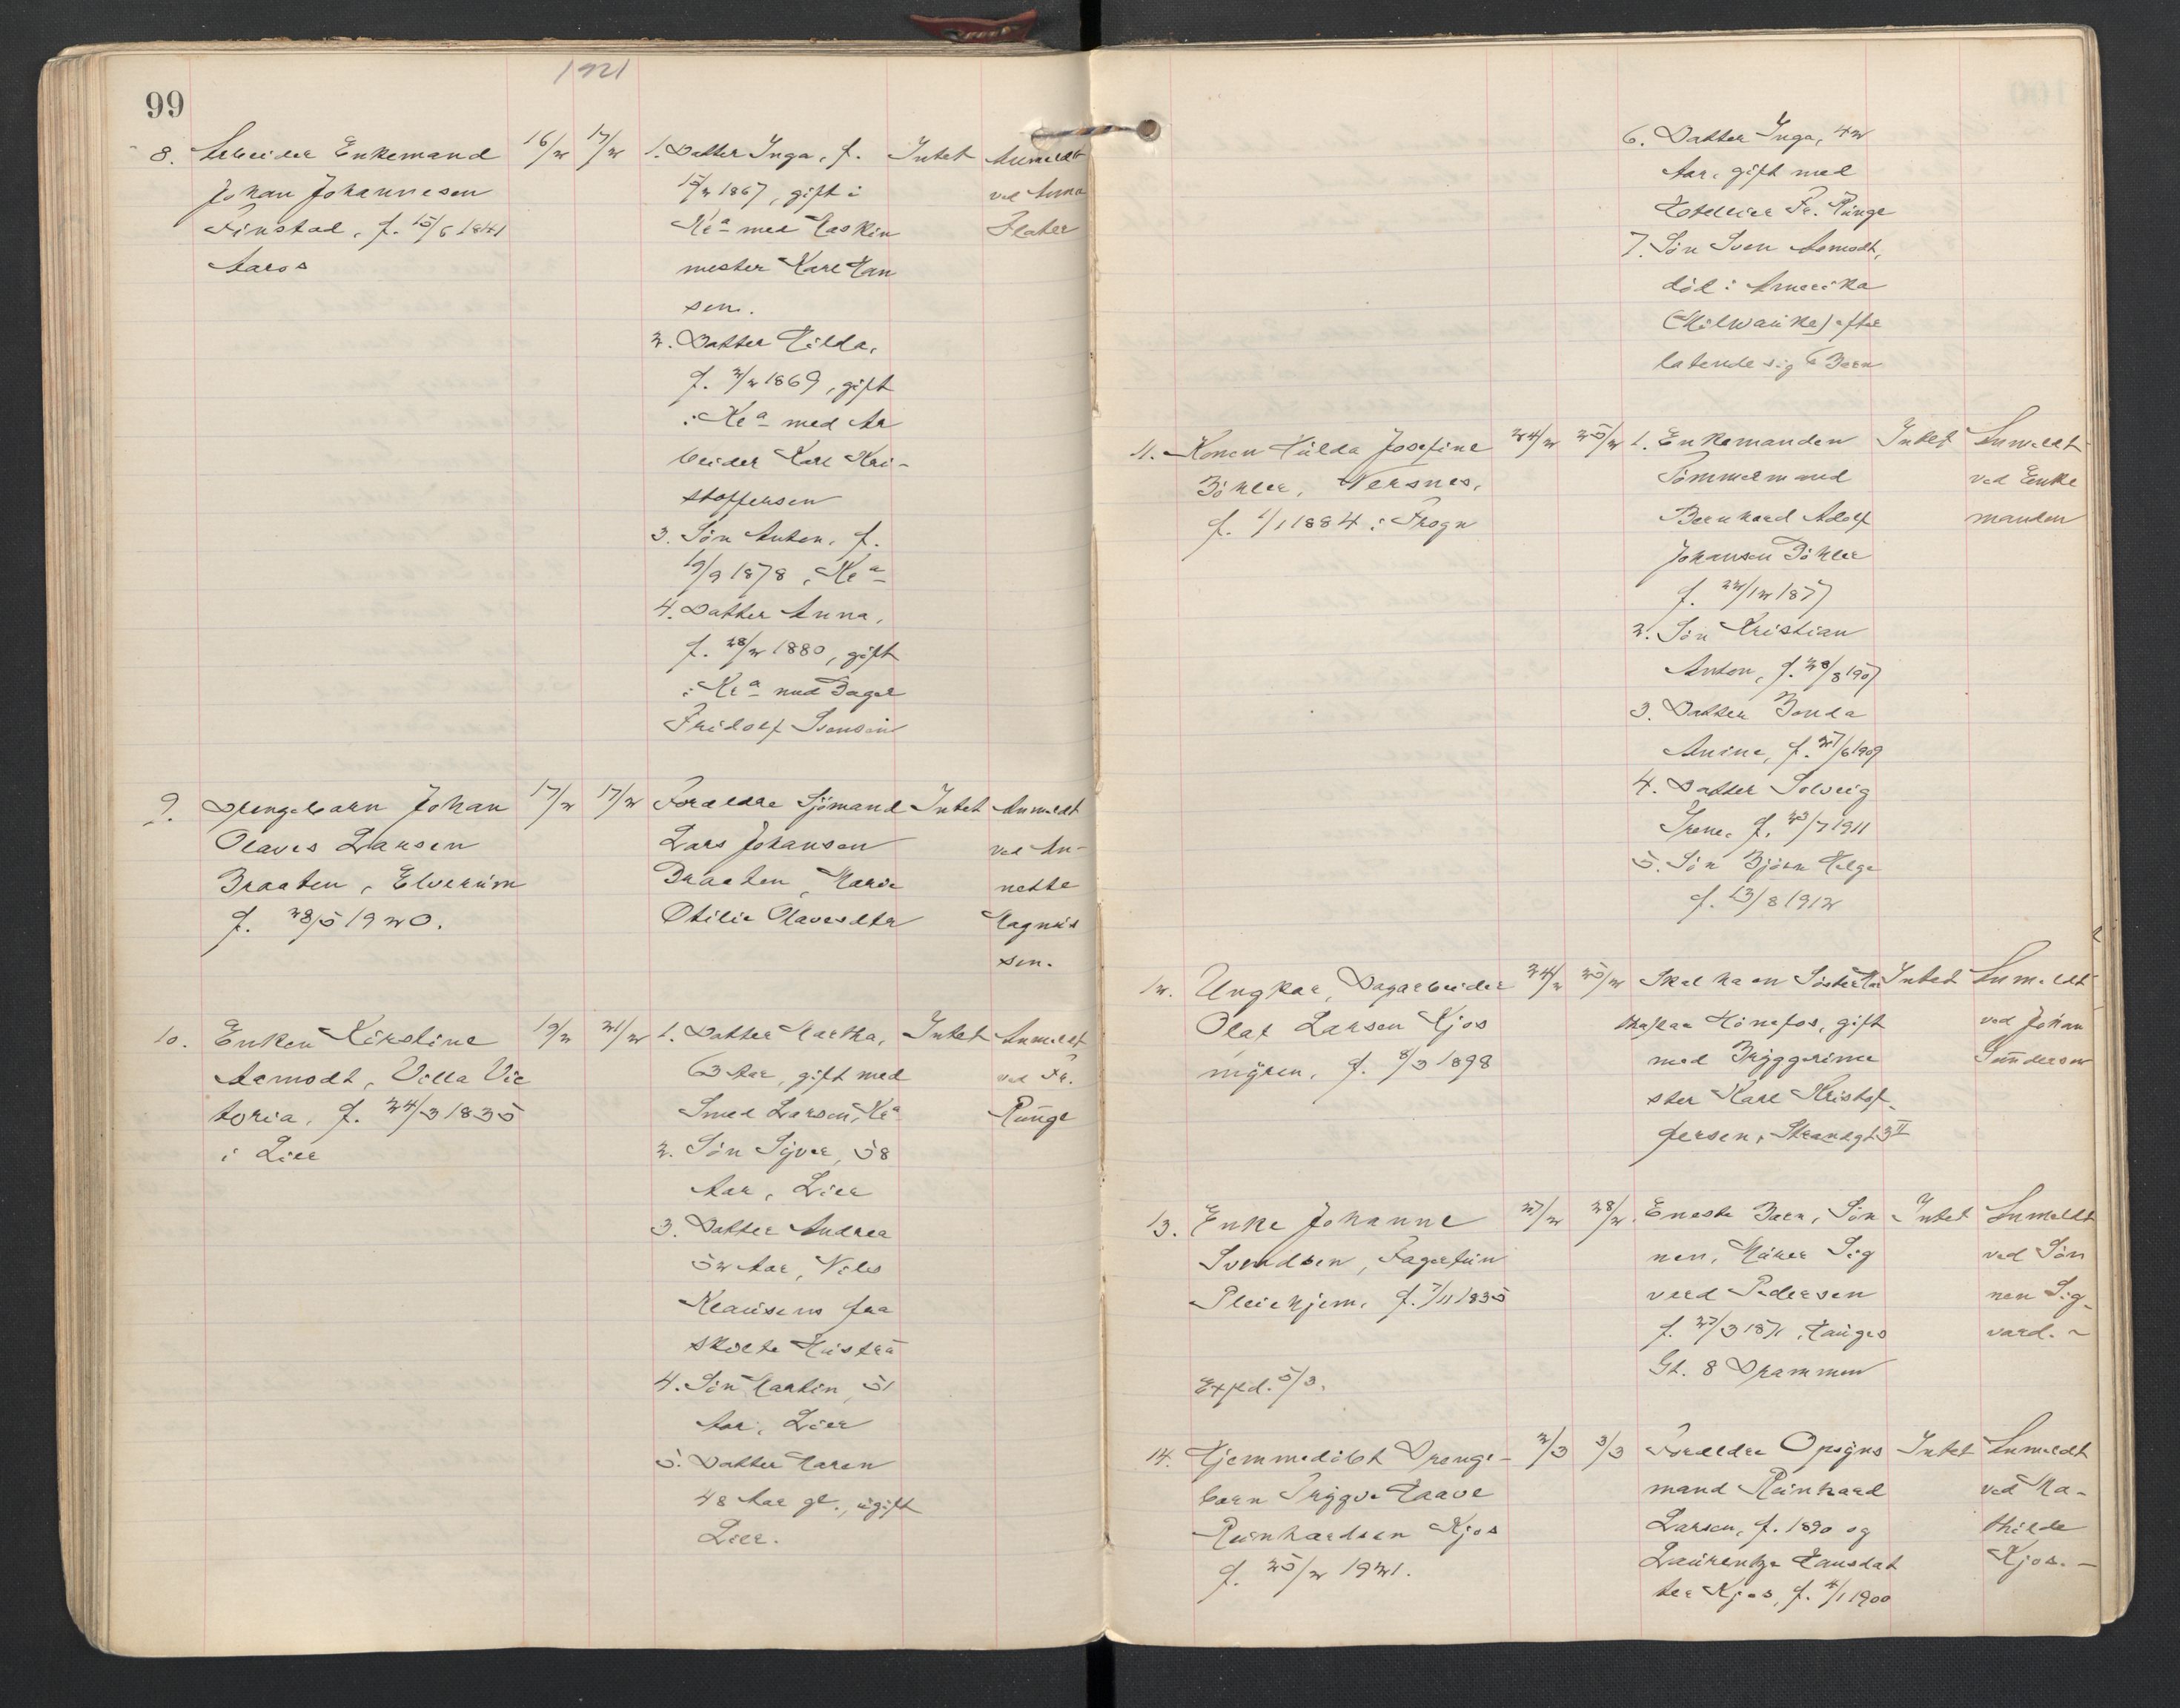 1921
99
8. Arbeider Enkemand
Johan Johannesen
Finstad, f. 15/6 1841
Aaros
16/2 17/2
1. Datter Inga, f.
1867, gift i
Kr.a med Maskin
mester Karl Han
sen.
2. Datter Hilda,
f. 2/2 1869, gift
i Kr.a med Ar
beider Karl Kri-
stoffersen
3. Sön Anton, f.
19/9 1878, Kr.a
4. Datter Anna,
f. 28/2 1880, gift
i Kr.a med Bager
Fridolf Svensen
Intet
Anmeldt
ved Anna
Flater
9. Drengebarn Johan
Olaves Larsen
Braaten, Elverum
f. 28/5 1920.
17/2 17/2
Foreldre Sjömand
Lars Johansen
Braaten, Marie
Otilie Olavesdtr
Intet
Anmeldt
ved An-
nette
Magnus
sen.
10. Enken Kirstine
Aamodt, Villa Vic
toria, f. 24/3 1835
i Lier
19/2 21/2
1. Datter Martha,
63 Aar, gift med
Smed Larsen, Kr.a
2. Sön Syver, 58
Aar, Lier
3. Datter Andrea
52 Aar, Nils
Klausens fra
skilte Hustru
4. Sön Martin, 51
Aar, Lier
5. Datter Maren
48 Aar gl., ugift
Lier.
Intet
Anmeldt
ved Fr.
Runge
6. Datter Inga, 42
Aar, gift med
Hoteleier Fr. Runge
7. Sön Sven Aamodt,
död i Amerika
(Milwaukee) efter
latende sig 6 Barn
11. Konen Hulda Josefine
Böhler, Nersnes,
f. 1/1 1884 i Frogn
24/2 25/2
1. Enkemanden
Tömmermand
Bernhard Adolf
Johansen Böhler
f. 22/12 1877
2. Sön Kristian
Anton, f. 28/8 1907
3. Datter Borda
Anine, f. 27/6 1909
4. Datter Solveig
Irene, f. 23/7 1911
5. Sön Björn Helge
f. 13/8 1912
Intet
Anmeldt
ved Enke
manden
12. Ungkar, Dagarbeider
Olaf Larsen Kjos
myren, f. 8/3 1898
24/2 25/2
Skal ha en Söster
Hönefos, gift
med Bryggerime
ster Karl Kristof-
fersen, Strandgt 3 II
Intet
Anmeldt
ved Johan
Gundersen
13. Enke Johanne
Svendsen, Fagertun
Pleiehjem, f. 7/11 1835
27/2 28/2
Eneste Barn, Sön
nen, Murer Sig
vard Pedersen
f. 27/3 1871, Hauges
Gt. 8 Drammen
Intet
Anmeldt
ved Sön
nen Sig-
vard.
Exped. 5/3.
14. Hjemmedöbt Drenge-
barn Trygve Haave
Reinhardsen Kjos
f. 25/2 1921.
2/3 3/3
Foreldre Opsyns
mand Reinhard
Larsen, f. 1890 og
Laurentze Hansdat
ter Kjos, f. 4/1 1900
Intet
Anmeldt
ved Ma-
thilde
Kjos.